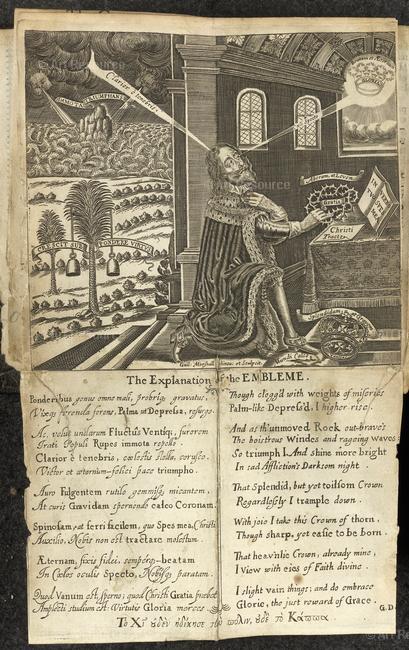 Clarior è tenebris
IMMOTA, TRIUMPHANS
CRESCIT SUB PONDERE VIRTUS
Beatam et Æternam
Gloria
Asperam, at Levem
Gratia
Christi Tracto
IN VERBO TUO SPES MEA
Splendidam, at Gravem
Vanitas
Mundi Calco
Guil. Marshall et Sculpsit
The Explanation of the EMBLEME.
Ponderibus genus omne mali, probris gravatus,
Vixque ferenda ferens, Palma ut Depressa, resurgo.
Ac, velut undarum Fluctûs Ventique, furorem
Irati Populi Rupes immota repello.
Clarior è tenebris, cœlestis stella, corusco.
Victor et æternum-felici pace triumpho.
Auro Fulgentem rutilo gemmisque micantem,
At curis Gravidam spernendo calco Coronam.
Spinosam, at ferri facilem, quo Spes mea, Christi
Auxilio, Nobis non est tractare molestum.
Æternam, fixis fidei, semperque-beatam
In Cœlos oculis Specto, Nobisque paratam.
Quod Vanum est, sperno; quod Christi Gratia præbet
Amplecti studium est: Virtutis Gloria merces.
Though clogg'd with weights of miseries
Palm-like Depress'd, I higher rise.
And as th'unmoved Rock out-brave's
The boistrous Windes and rageing waves:
So triumph I. And shine more bright
In sad Affliction's Darksom night.
That Splendid, but yet toilsom Crown
Regardlessly I trample down.
With joie I take this Crown of thorn,
Though sharp, yet easie to be born.
That heav'nlie Crown, already mine,
I View with eies of Faith divine.
I slight vain things; and do embrace
Glorie, the just reward of Grace.
G.D.
Το Χῖ ουδὲν ηδίκησε την πολιν, ουδὲ το Κάππα.